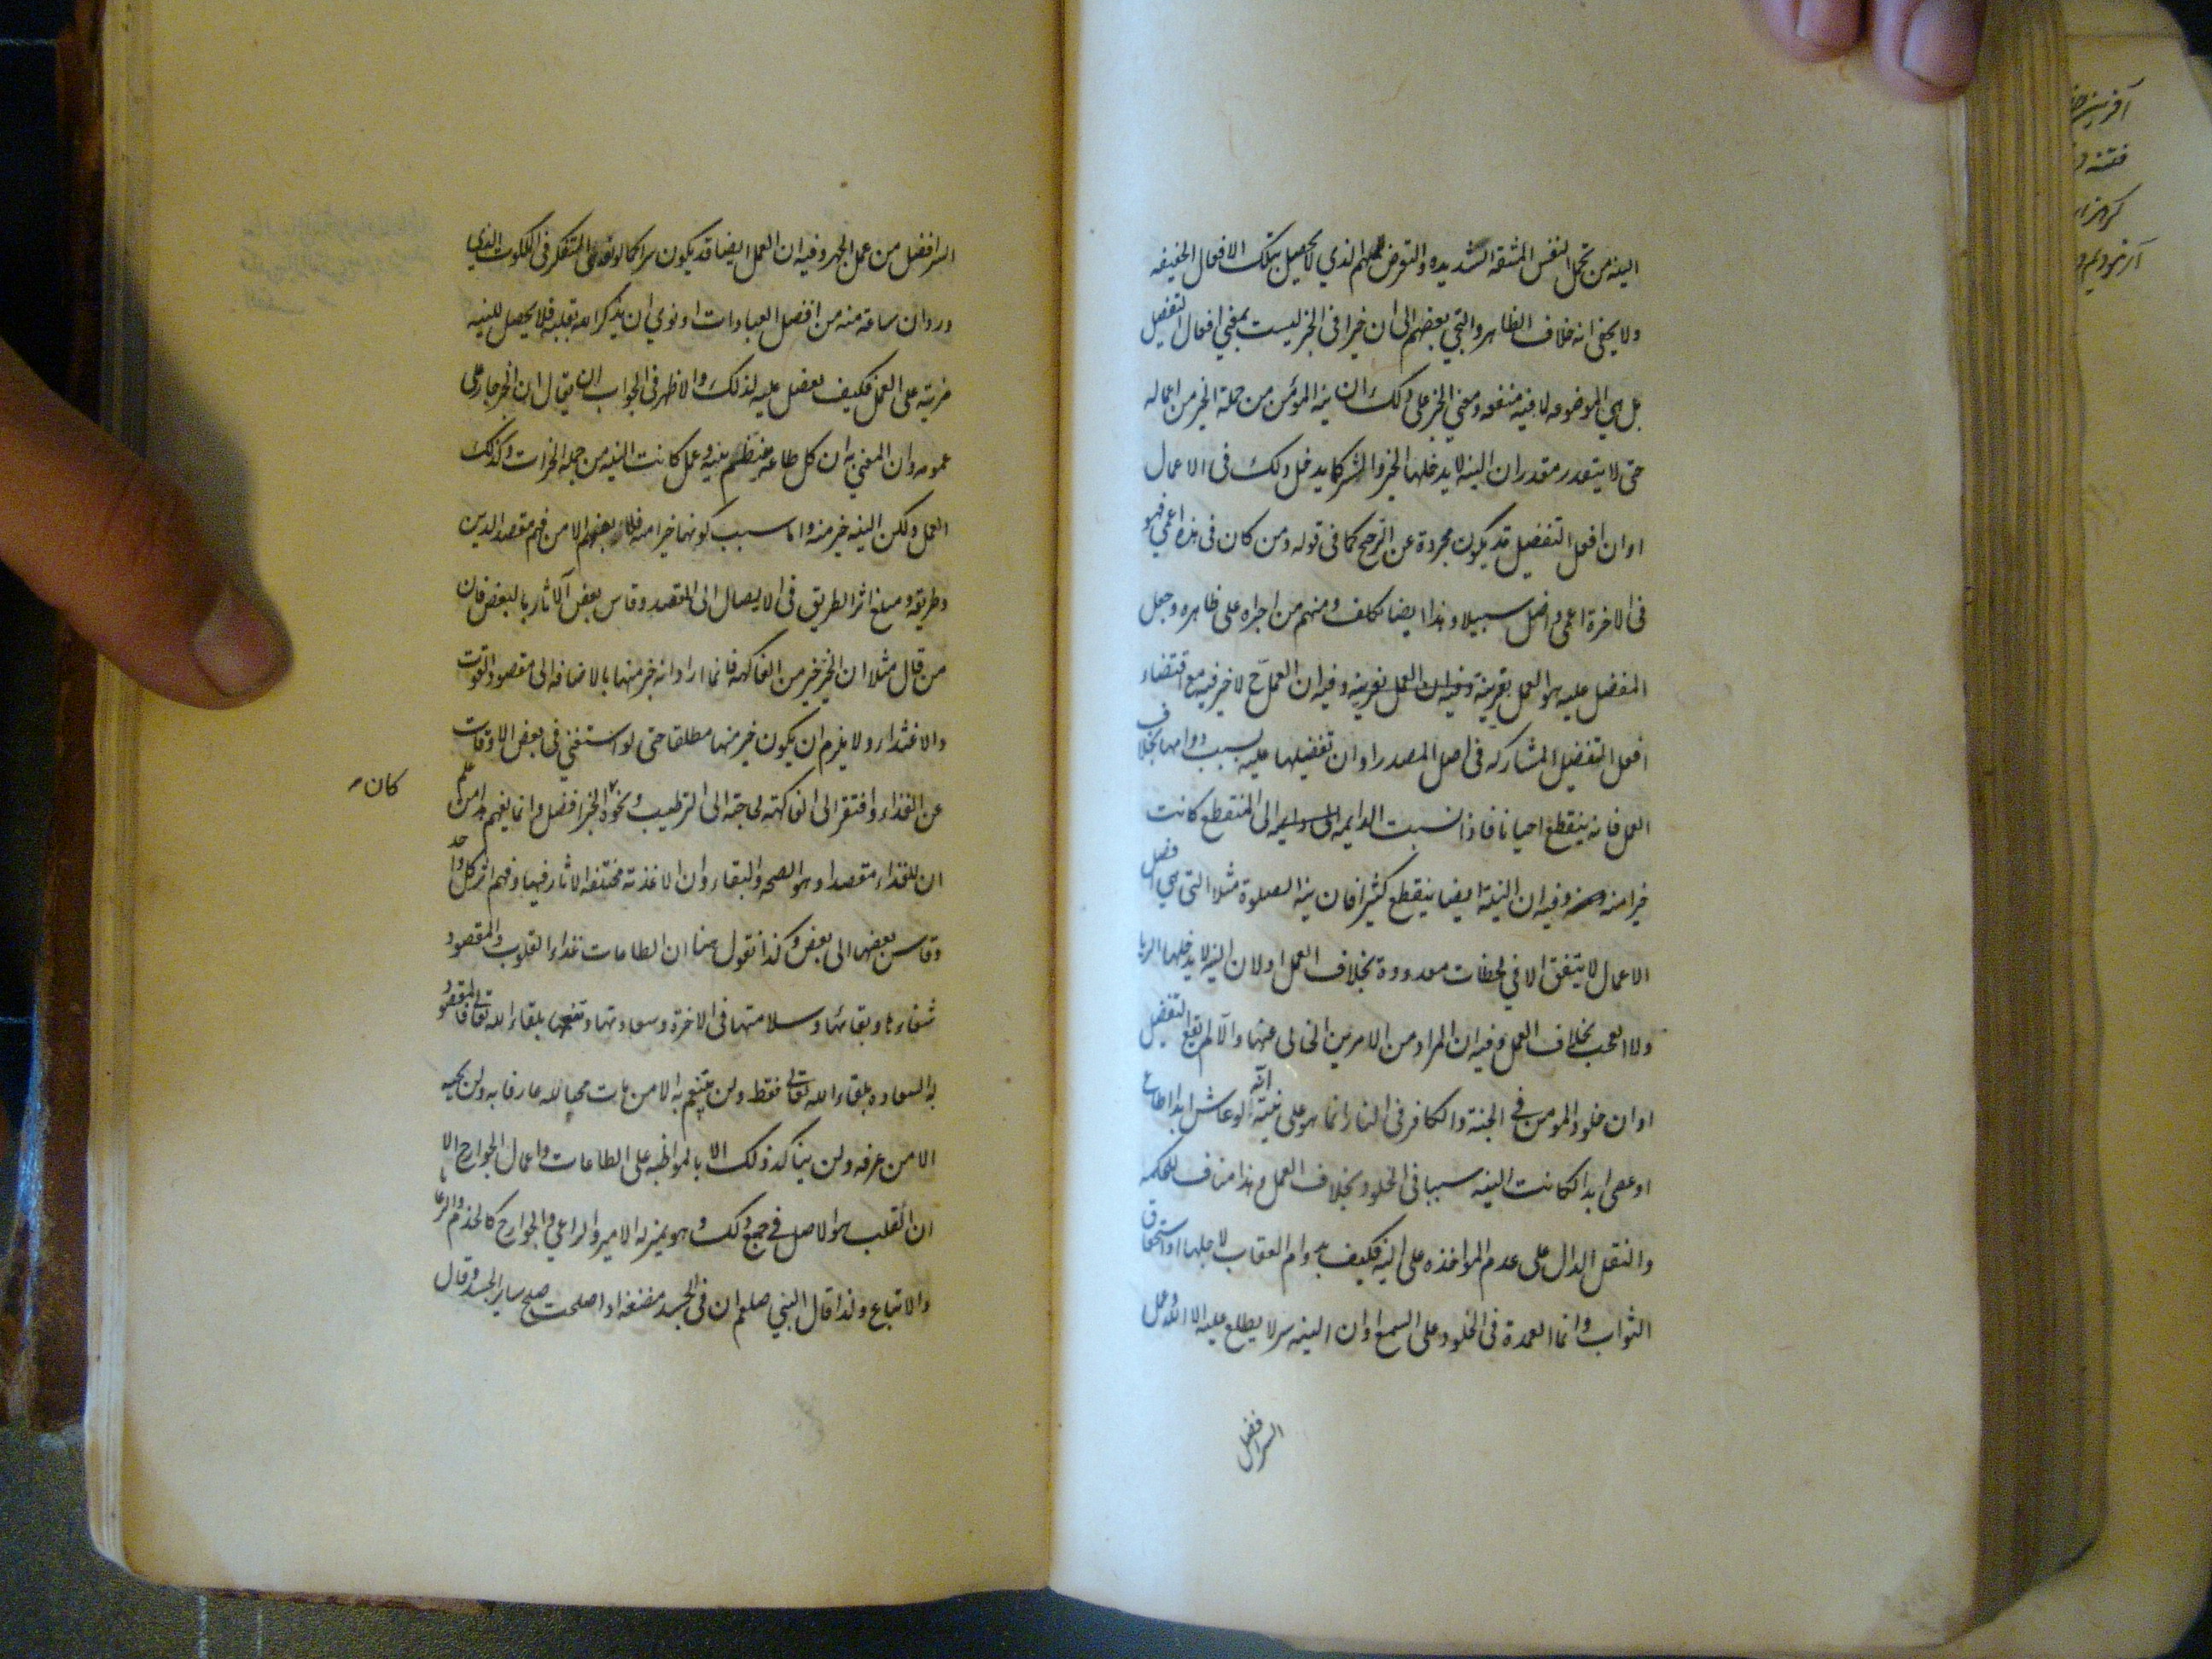 الینه من تحمل النفس المشقه الشدیده والتعرض للهم الذی لا یحصل بتلک الافعال الخفیفه
ولا یخفی انه خلاف الظاهر والتجی بعضهم الی ان خیرا فی الخبر لیست بمعنی افعال التفضیل
بل هی الموضوعه لما فیه منفعه ومعنی الخبر علی ذلک ان نیه المؤمن من جمله الخیر من اعماله
حتی لا یتقدر مقدر ان النیه لا یدخلها الخیر والشر کما یدخل ذلک فی الاعمال
او ان افعل التفضیل قد یکون مجردة عن الترجیح کما فی قوله ومن کان فی هذه اعمی فهو
فی الاخرة اعمی واضل سبیلا وهذا ایضا تکلف ومنهم من اجراه علی ظاهره وجعل
المفضل علیه هو العمل بقرینة وفیه ان العمل بقرینه وفیه ان العمل ح لا خیر فیه مع اقتضاء
افعل التفضیل المشارکه فی اصل المصدر او ان تفضیلها علیه بسبب دوامها بخلاف
العمل فانه ینقطع احیانا فاذا نسبت الدایمه الی المنقطع کانت
خیرا منه وفیه ان النیة ایضا ینقطع کثیرا فان نیة الصلوة مثلا التی هی افضل
الاعمال لا یتفق الا فی لحظات معدودة بخلاف العمل او لان النیه لا یدخلها الریا
ولا العجب بخلاف العمل وفیه ان المراد من الامرین الخالی عنها والا لم یقع التفضیل
او ان خلود المومن فی الجنة والکافر فی النار انما هو علی نیته انه لو عاش ابدا اطاع
او عصی ابدا فکانت النیه سببا فی الخلود بخلاف العمل وهذا مناف للحکمه
والنقل الدال علی عدم المواخذه علی النیه فکیف بدوام العقاب لاجلها او استحقاق
الثواب وانما العمدة فی الخلود علی السمع او ان النیه سر لا یطلع علیه الا الله وعمل
السر افضل
السر افضل من عمل الجهر وفیه ان العمل ایضا قد یکون سرا کما لو نوی التفکر فی الملکوت الذی
ورد ان ساعة منه من افضل العبادات او نوی ان یذکر الله بقلبه فلا یحصل للنیه
مزیة علی العمل فکیف یفضل علیه لذلک والاظهر فی الجواب ان یقال ان الخبر جار علی
عمومه وان المعنی به ان کل طاعه ینتظم بنیه وعمل کانت النیه من جمله الخیرات وکذلک
العمل ولکن النیه خیر منه واما سبب کونها خیرا منه فلا یفهم الا من فهم مقصد الدین
وطریقه ومبلغ اثر الطریق فی الایصال الی المقصد وقاس بعض الآثار بالبعض فان
من قال مثلا ان الخبز خیر من الفاکهه فانما اراد انه خیر منها بالاضافه الی مقصود القوت
والاغتذاء ولا یلزم ان یکون خیر منها مطلقا حتی لو استغنی فی بعض الاوقات
عن الغذاء وافتقر الی الفاکهة لحاجته الی الترطیب ونحوه الخبز افضل وانما یفهم هذا من علم
کان
ان للغذاء مقصدا وهو الصحه والبقاء وان الاغذیة مختلفه الاثار فیها وفهم اثر کل واحد
وقاس بعضها الی بعض وکذا نقول هنا ان الطاعات غذاء القلوب والمقصود
شفاءها وبقائها وسلامتها فی الاخرة وسعادتها وتنعمها بلقاء الله تعالی فالمقصود
له السعاده بلقاء الله تعالی فقط ولن یتنعم به الا من مات محبا لله عارفا به ولن یحبه
الا من عرفه ولن یتاکد ذلک الا بالمواظبه علی الطاعات واعمال الجوارح الا
ان القلب هو الاصل فی جمیع ذلک وهو بمنزله الامیر والراعی والجوارح کالخدم والرعایا
والاتباع ولذا قال النبی صلعم ان فی الجسد مضغة اذا صلحت صلح سایر الجسد وقال